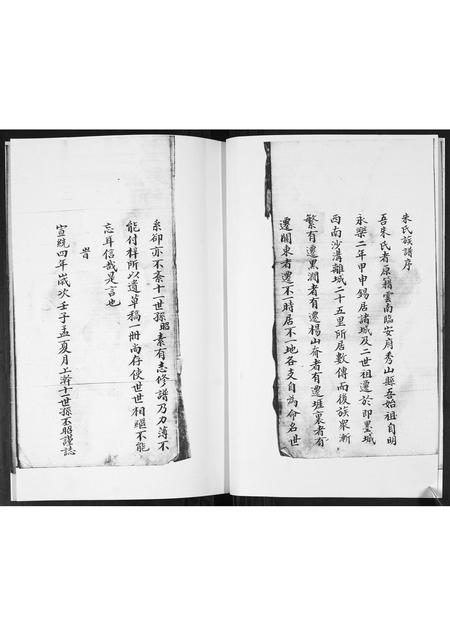 朱氏族譜序
吾朱氏者原籍雲南臨安府秀山縣吾始祖自明
永樂二年甲申錫居諸城及二世祖遷於即墨城
西南沙溝離城二十五里所居數傳而後族衆漸
繁有遷黑澗者有遷楊山夼者有遷堐裏者有
遷關東者遷不一時居不一地各支自為命名世
系卻亦不紊十一世孫昭素有志修譜乃力薄不
能付梓所以遺草稿一冊尚存使世世相繼不能
忘耳信哉是言也
旹
宣統四年歲次壬子孟夏月上澣十一世孫丕昭謹誌